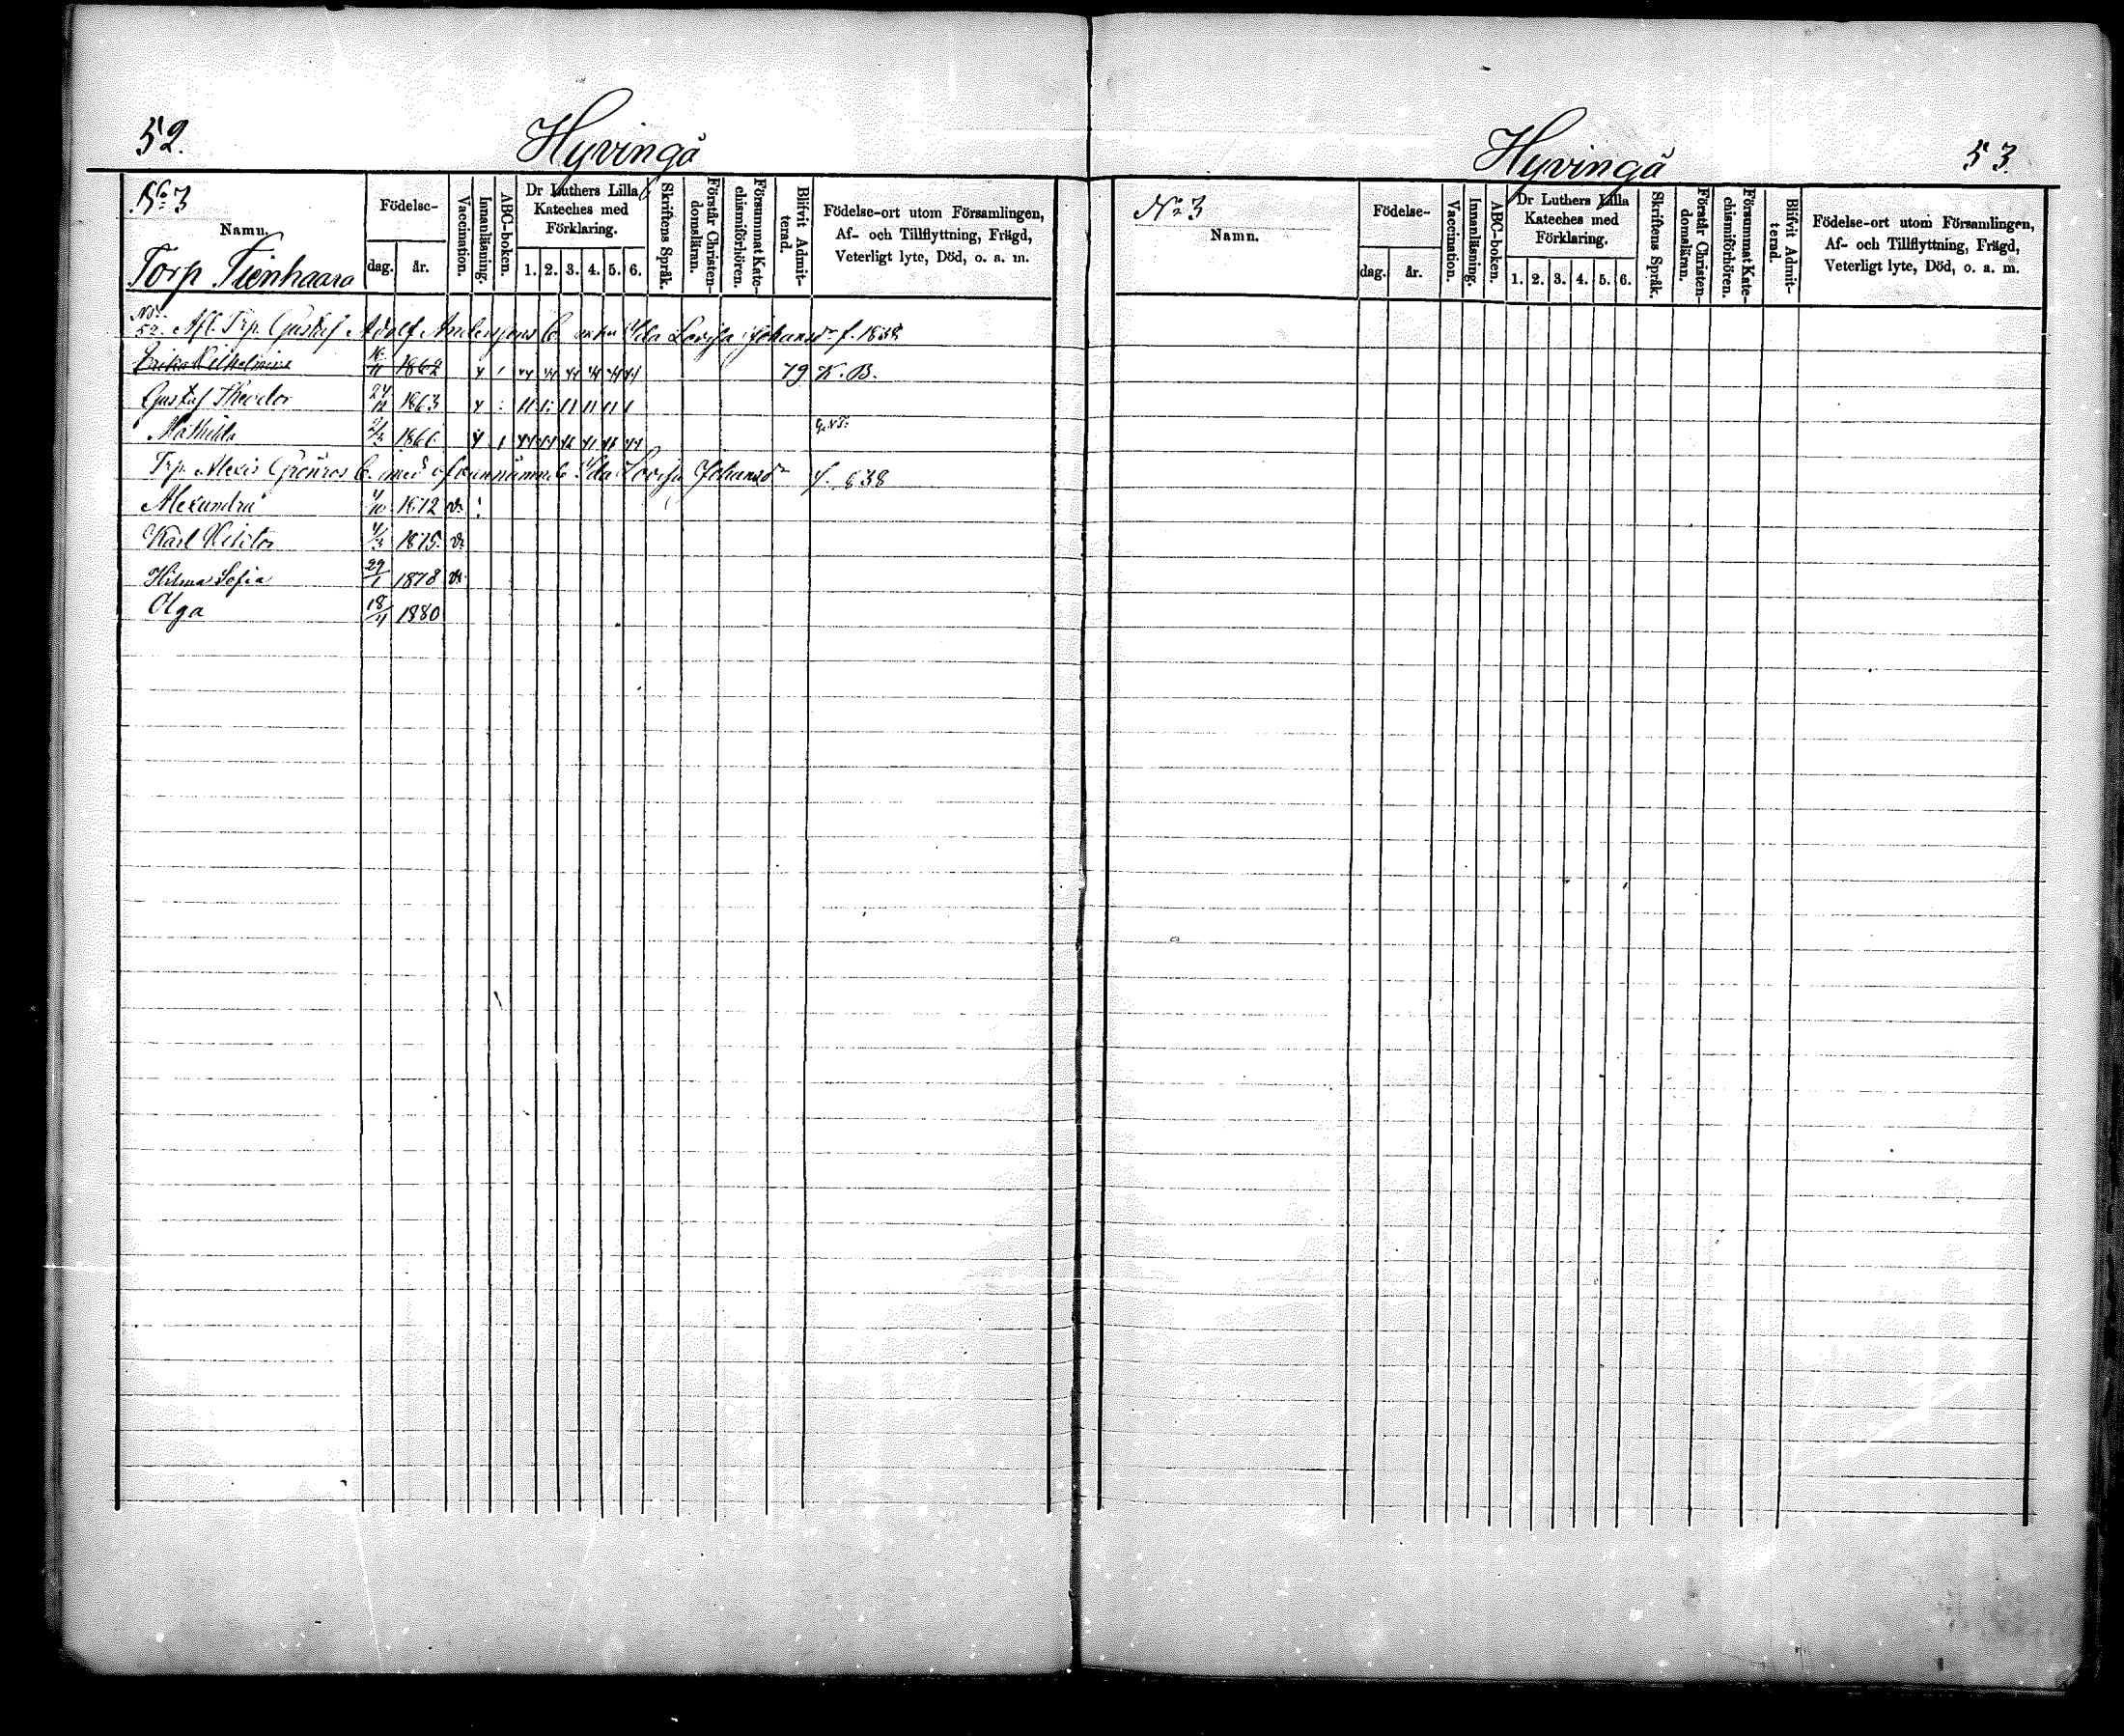 52.
Hyvingå
No 3
Namn.
Torp Tienhaara
Födelse-
dag.
år.
Vaccination.
Innanläsning.
ABC-boken.
Dr Luthers Lilla
Kateches med
Förklaring.
1. 2. 3. 4. 5. 6.
Skriftens Språk.
Förstår Christen-
domsläran.
Försummat Kate-
chismiförhören.
Blifvit Admit-
terad.
Födelse-ort utom Församlingen,
Af- och Tillflyttning, Frägd,
Veterligt lyte, Död, o. a. m.
No:
52. Afl. Trp. Gustaf Adolf Anderssons b. enkan Ida Lovisa Johansdr f. 1838
Erika Vilhelmina 1862 79 K. B.
Gustaf Theodor 24/12 1863
Mathilda 1866
Trp. Alexis Grönros b. med ofvannämnde Ida Lovisa Johansdr f. 838
Alexandra 1872 v.
Karl Viktor 1875 v.
Hilma Sofia 29/1 1878 v.
Olga 18/4 1880
Hyvingå
53.
No 3
Namn.
Födelse-
dag.
år.
Vaccination.
Innanläsning.
ABC-boken.
Dr Luthers Lilla
Kateches med
Förklaring.
1. 2. 3. 4. 5. 6.
Skriftens Språk.
Förstår Christen-
domsläran.
Försummat Kate-
chismiförhören.
Blifvit Admit-
terad.
Födelse-ort utom Församlingen,
Af- och Tillflyttning, Frägd,
Veterligt lyte, Död, o. a. m.